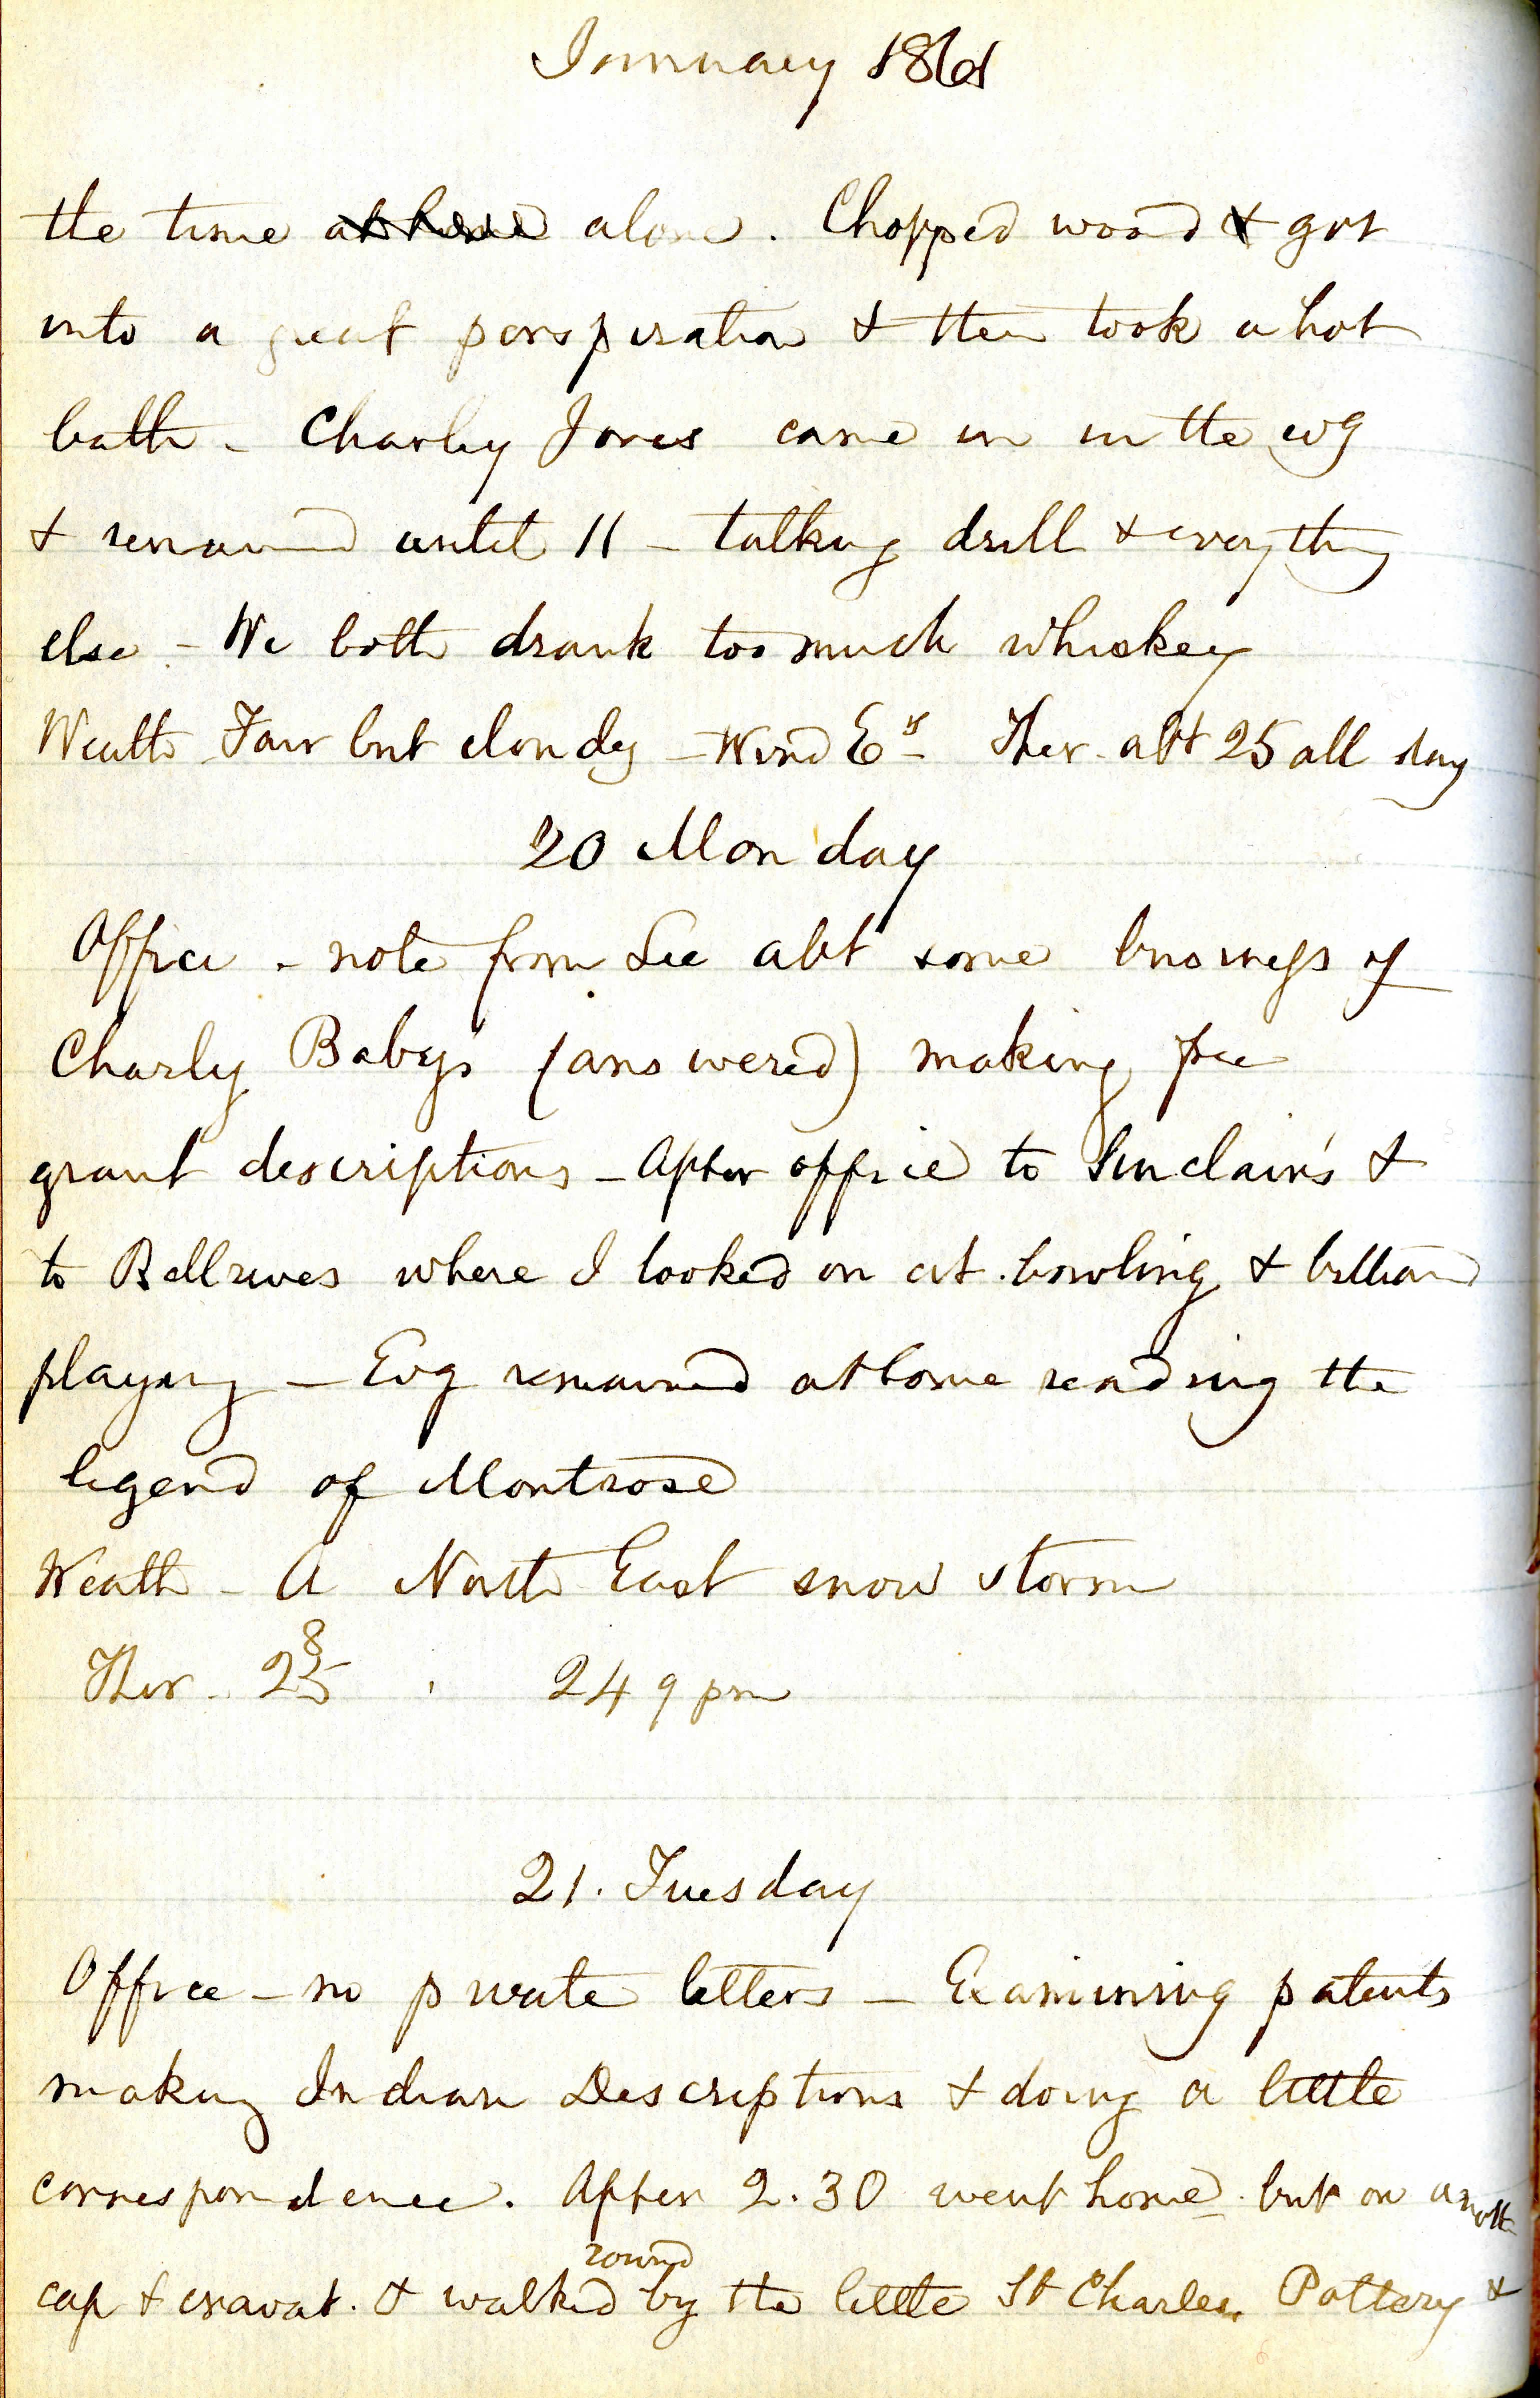 January 1861
the time at home alone. Chopped wood & got
into a great perspiration & then took a hot
bath - Charley Jones came in in the evg
& remained until 11 - talking drill & everything
else - We both drank too much whiskey
Weath Fair but cloudy - Wind Ely - Ther. abt 25 all day
20 Monday
Office - note from Lee abt some business of
Charly Baby's (answered) making free
grant descriptions - After office to Sinclair's &
to Bellrives where I looked on at bowling & billiard
playing - Evg remained at home reading the
legend of Montrose
Weath - A North East snow storm
Ther. 25 8 24 9 pm
21. Tuesday
Office - no private letters - Examining patents
making Indian Descriptions & doing a little
correspondence. After 2.30 went home. but on another
cap & cravat. & walked round by the little St Charles Pottery &